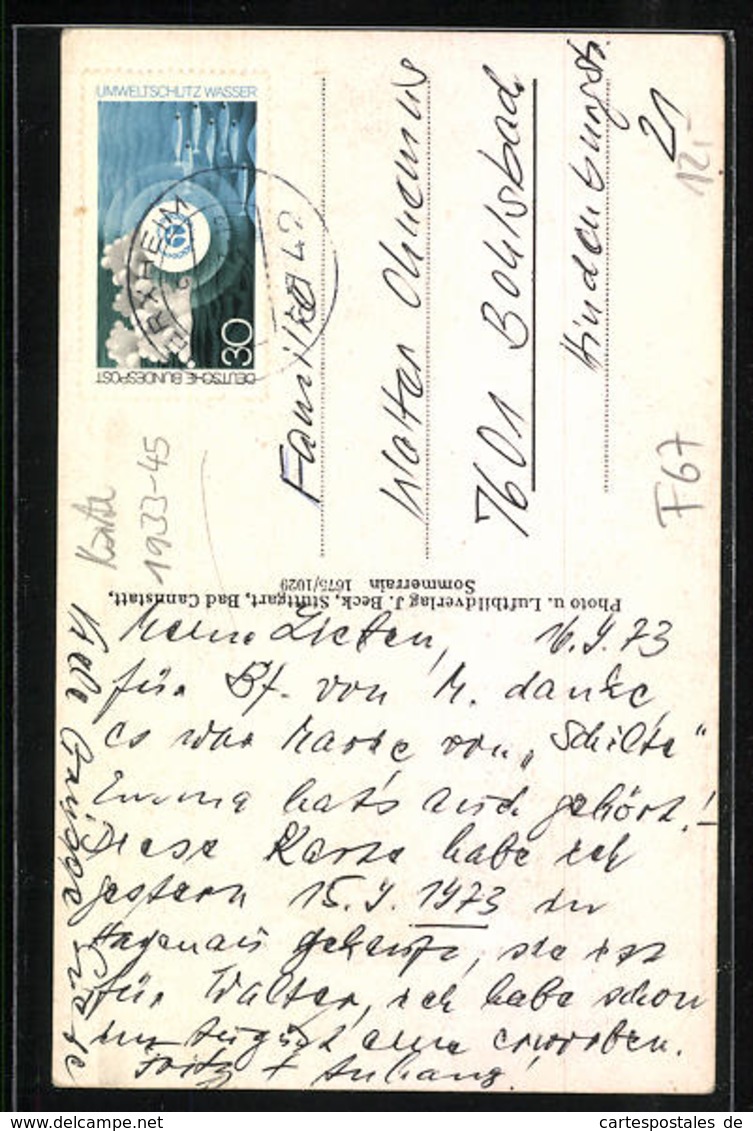 UMWELTSCHUTZ WASSER
30
DEUTSCHE BUNDESPOST
Familie
Walter
7601 Bohlsbach
Hindenburgstr.
21
12,-
F67
Karte
1933-45
Photo u. Luftbildverlag J. Beck, Stuttgart, Bad Cannstatt,
Sommerrain 1675/1029
Meine Lieben, 16.9.73
für Bf. von M. danke,
es war Marke von "Schilta"
Emma hat's auch gehört!
Diese Karte habe ich
gestern 15.9.1973 in
Hagenau gekauft, sie ist
für Walter, ich habe schon
im August eine erworben.
Fritz + Anhang!
Viele Grüsse
cartespostales de